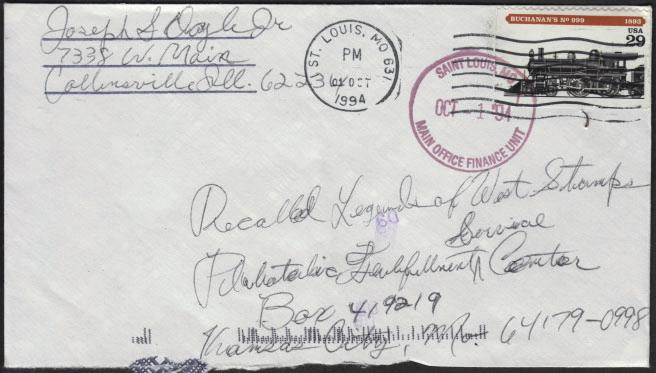 Joseph S Doyle Jr
7338 W. Main
Collinsville, Ill. 62234
ST. LOUIS, MO 631
PM
01 OCT
1994
SAINT LOUIS, MO
OCT - 1 '94
MAIN OFFICE FINANCE UNIT
BUCHANAN'S Nº 999 1893
USA
29
Recalled Legends of West Stamps
Service
Philatelic Fulfillment Center
Box 419219
Kansas City, Mo. 64179-0998